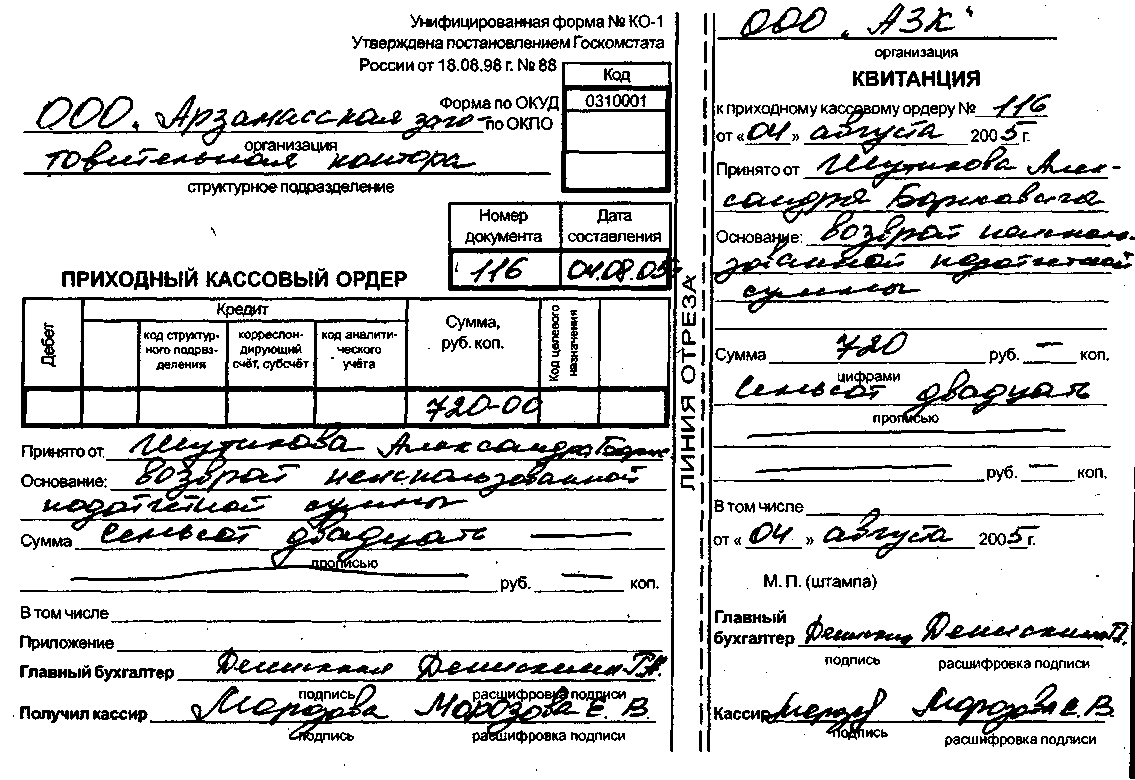 Унифицированная форма № КО-1
Утверждена постановлением Госкомстата
России от 18.08.98 г. № 88
Код
Форма по ОКУД 0310001
ООО „Арзамасская заго-
по ОКПО
организация
товительная контора
структурное подразделение
Номер документа
Дата составления
116
04.08.05
ПРИХОДНЫЙ КАССОВЫЙ ОРДЕР
Дебет
Кредит
код структур-
ного подраз-
деления
корреспон-
дирующий
счёт, субсчёт
код аналити-
ческого
учёта
Сумма,
руб. коп.
Код целевого
назначения
720-00
Принято от Шутикова Александра
Основание: возврат неиспользованной
подотчетной суммы
Сумма Семьсот двадцать —
прописью
— руб. — коп.
В том числе
Приложение
Главный бухгалтер
подпись расшифровка подписи
Получил кассир Морозова Морозова Е. В.
подпись расшифровка подписи
ЛИНИЯ ОТРЕЗА
ООО „АЗК“
организация
КВИТАНЦИЯ
к приходному кассовому ордеру № 116
от «04» августа 2005 г.
Принято от Шутикова Алек-
сандра Борисовича
Основание: возврат неисполь-
зованной подотчетной
суммы
Сумма 720 руб. — коп.
цифрами
Семьсот двадцать
прописью
— руб. — коп.
В том числе
от « 04 » августа 2005 г.
М. П. (штампа)
Главный
бухгалтер
подпись расшифровка подписи
Кассир Морозова Е. В.
подпись расшифровка подписи